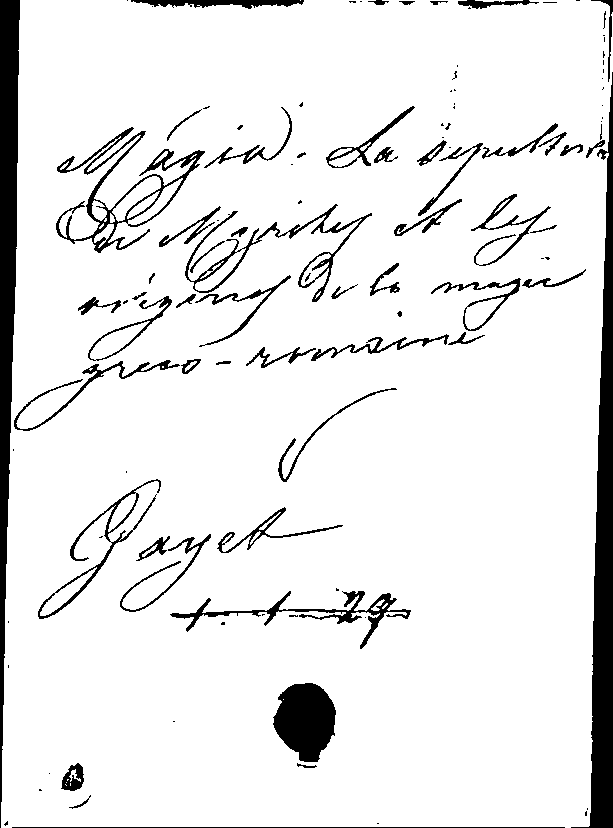 Mágia. La sepulture
de Myrithis et les
origines de la magie
greco-romaine
Gayet
1. 1 29